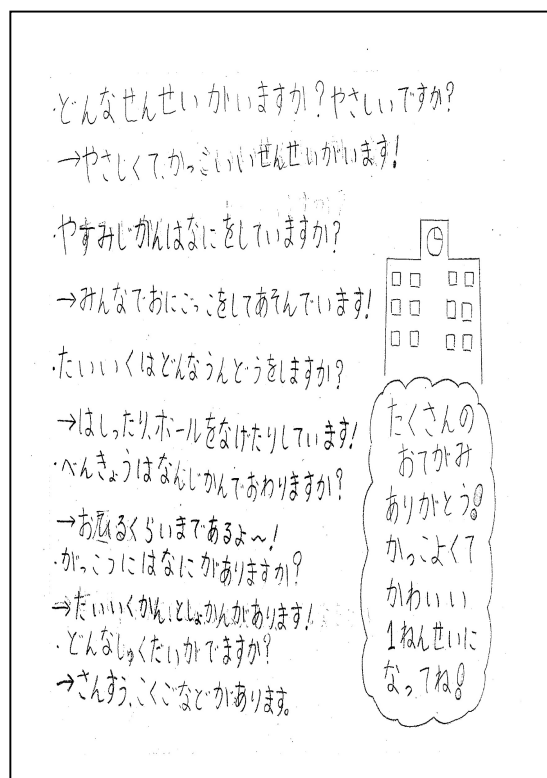 ・どんなせんせいがいますか?やさしいですか?
→やさしくて、かっこいいせんせいがいます!
・やすみじかんはなにをしていますか?
→みんなでおにごっこをしてあそんでいます!
・たいいくはどんなうんどうをしますか?
→はしったり、ボールをなげたりしています!
・べんきょうはなんじかんでおわりますか?
→お昼るくらいまであるよ〜!
・がっこうにはなにがありますか?
→たいいくかん、としょかんがあります!
・どんなしゅくだいがでますか?
→さんすう、こくごなどがあります。
たくさんの
おてがみ
ありがとう!
かっこよくて
かわいい
1ねんせいに
なってね!